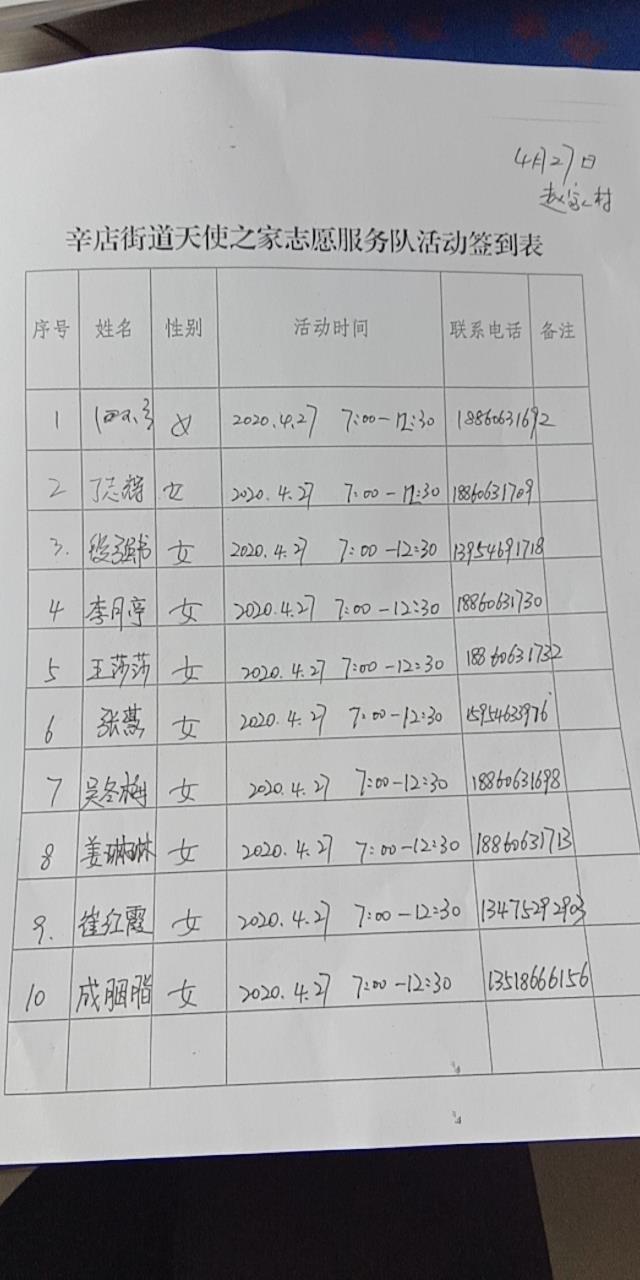 4月27日
赵家村
辛店街道天使之家志愿服务队活动签到表
序号 姓名 性别 活动时间 联系电话 备注
1 女 2020.4.27 7:00-12:30 18860631692
2 女 2020.4.27 7:00-12:30 18860631709
3. 女 2020.4.27 7:00-12:30 13954691718
4 李月亭 女 2020.4.27 7:00-12:30 18860631730
5 王莎莎 女 2020.4.27 7:00-12:30 18860631732
6 张燕 女 2020.4.27 7:00-12:30 15954633976
7 吴冬梅 女 2020.4.27 7:00-12:30 18860631698
8 姜琳琳 女 2020.4.27 7:00-12:30 18860631713
9. 崔红霞 女 2020.4.27 7:00-12:30 13475292903
10 成胭脂 女 2020.4.27 7:00-12:30 13518666156